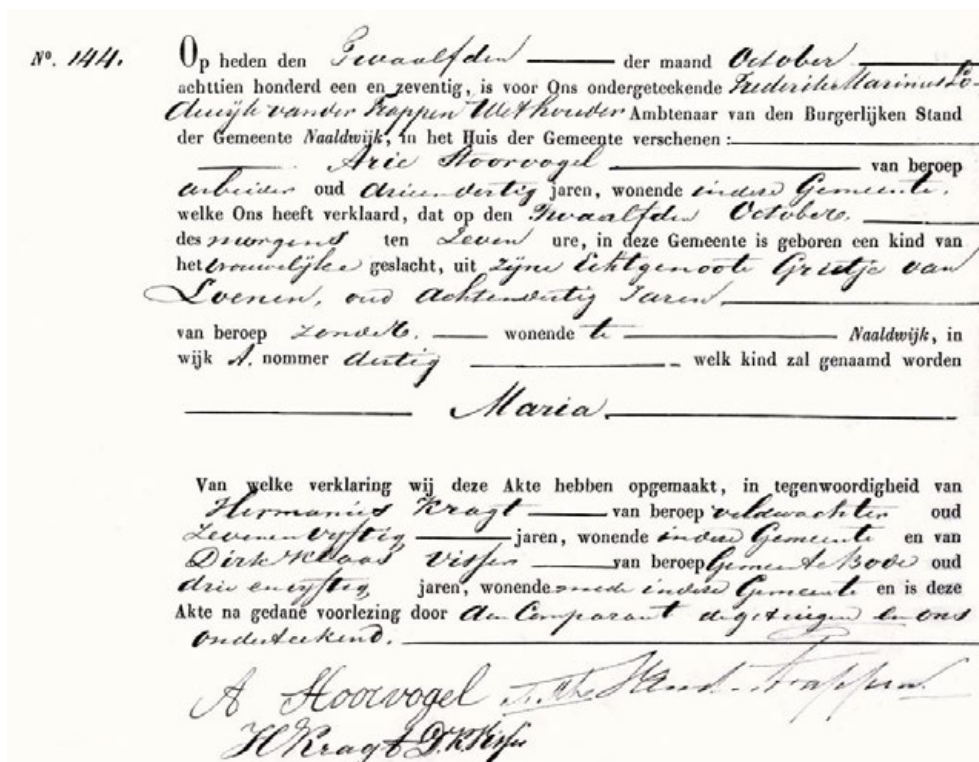 No. 144. Op heden den Twaalfden der maand October
achttien honderd een en zeventig, is voor Ons ondergeteekende Frederik Marinus Lo-
dewijk van der Trappen Wethouder Ambtenaar van den Burgerlijken Stand
der Gemeente Naaldwijk, in het Huis der Gemeente verschenen:
Arie Stoorvogel van beroep
arbeider oud drieendertig jaren, wonende in deze Gemeente,
welke Ons heeft verklaard, dat op den Twaalfden October
des morgens ten Zeven ure, in deze Gemeente is geboren een kind van
het vrouwelijke geslacht, uit zijne Echtgenoote Grietje van
Loenen, oud achtendertig Jaren
van beroep zonder wonende te Naaldwijk, in
wijk A. nommer dertig welk kind zal genaamd worden
Maria
Van welke verklaring wij deze Akte hebben opgemaakt, in tegenwoordigheid van
Hermanus Kragt van beroep veldwachter oud
Zevenenvyftig jaren, wonende in deze Gemeente en van
Dirk Klaas Visser van beroep Gemeente Bode oud
drieenvyftig jaren, wonende mede in deze Gemeente en is deze
Akte na gedane voorlezing door den Comparant de getuigen en ons
onderteekend.
A Stoorvogel
H Kragt D. K. Visser